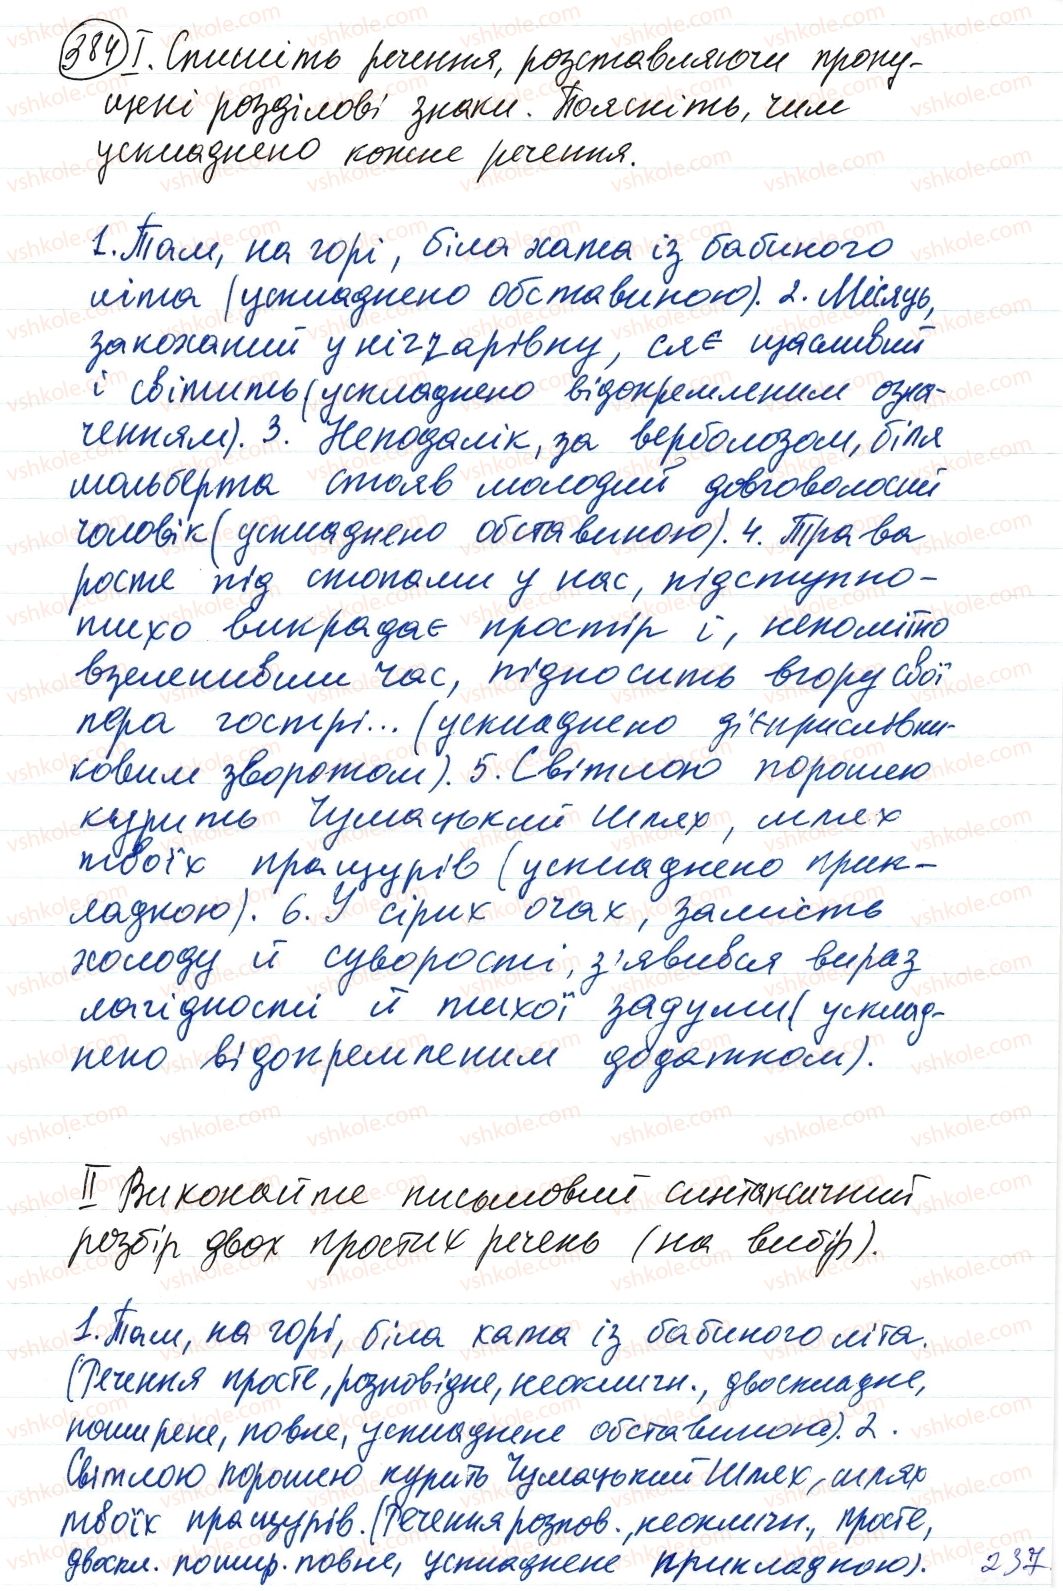 384 I. Спишіть речення, розставляючи пропу-
щені розділові знаки. Поясніть, чим
ускладнено кожне речення.
1. Там, на горі, біла хата із бабиного
літа (ускладнено обставиною). 2. Місяць,
закоханий у ніч чарівну, сяє щасливий
і світить (ускладнено відокремленим озна-
ченням). 3. Неподалік, за верболозом, біля
мольберта стояв молодий довговолосий
чоловік (ускладнено обставиною). 4. Трава
росте під стопами у нас, підступно-
тихо викрадає простір і, непомітно
взеленивши час, підносить вгору свої
пера гострі... (ускладнено дієприслівни-
ковим зворотом). 5. Світлою порошею
курить Чумацький Шлях, шлях
твоїх пращурів (ускладнено прик-
ладкою). 6. У сірих очах, замість
холоду й суворості, з'явився вираз
лагідності й тихої задуми (усклад-
нено відокремленим додатком).
II Виконайте письмовий синтаксичний
розбір двох простих речень (на вибір).
1. Там, на горі, біла хата із бабиного літа.
(Речення просте, розповідне, неокличн., двоскладне,
поширене, повне, ускладнене обставиною). 2.
Світлою порошею курить Чумацький Шлях, шлях
твоїх пращурів. (Речення розпов., неокличн., просте,
двоскл. пошир. повне, ускладнене прикладкою).
237